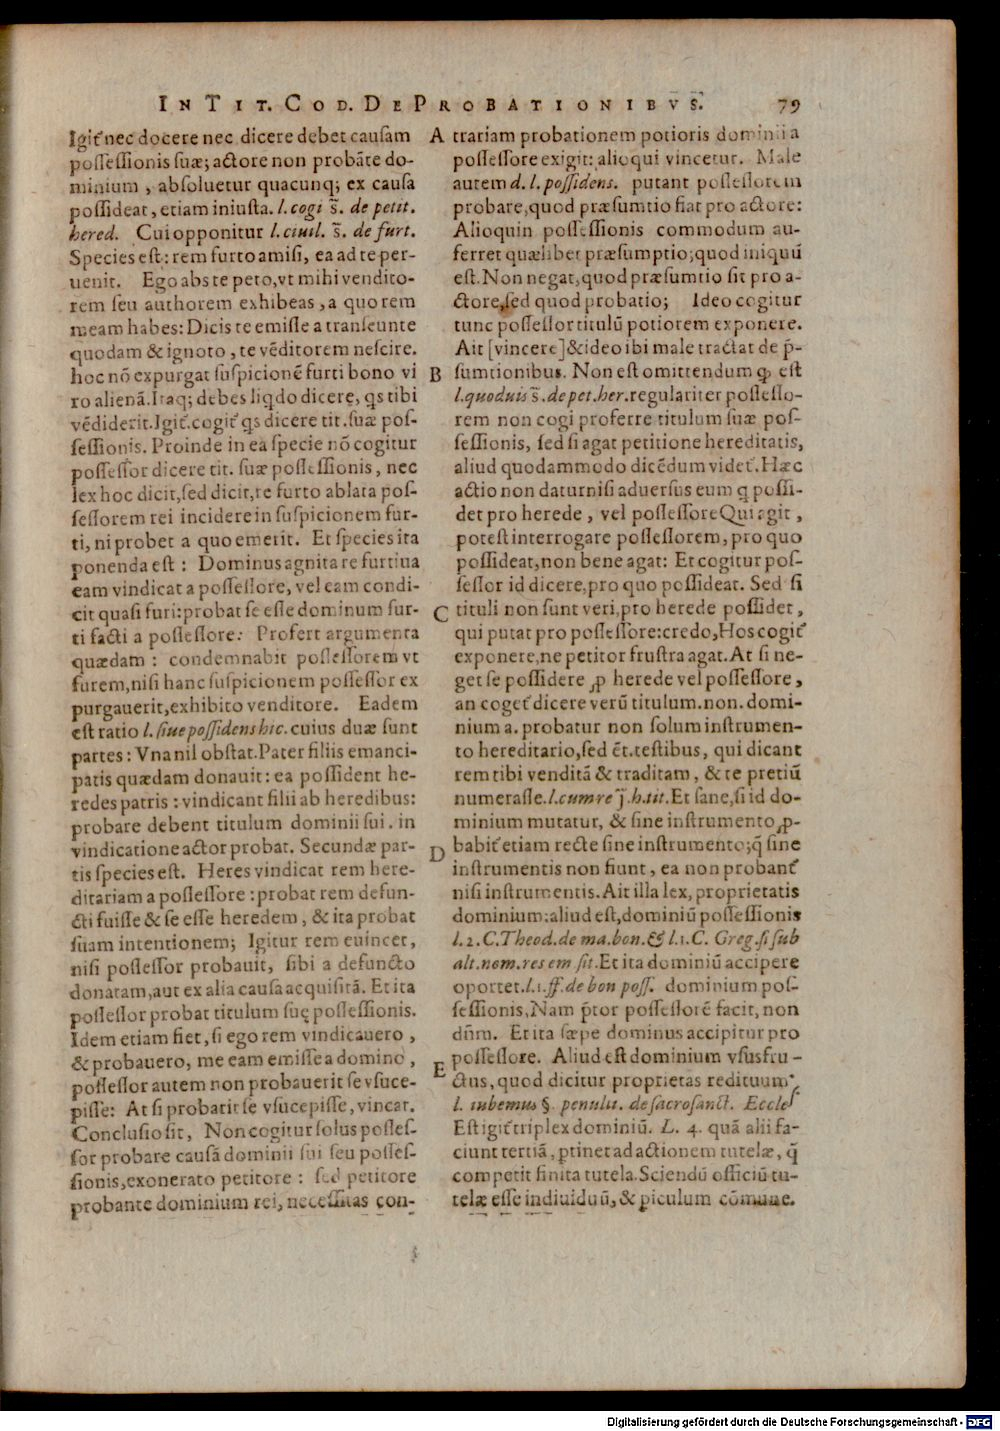 IN TIT. COD. DE PROBATIONIBVS. 79
Igit᷑ nec docere nec dicere debet cauſam
poſſeſſionis ſuæ; actore non probāte do-
minium, abſoluetur quacunq; ex cauſa
poſſideat, etiam iniuſta. l. cogi s̄. de petit.
hered. Cui opponitur l. ciuil. s̄. de furt.
Species eſt: rem furto amiſi, ea ad te per-
uenit. Ego abs te peto, vt mihi vendito-
rem ſeu authorem exhibeas, a quo rem
meam habes: Dicis te emiſſe a tranſeunte
quodam & ignoto, te vēditorem neſcire.
hoc nō expurgat ſuſpicionē furti bono vi
ro alienā. Itaq; debes liqdo dicere, qs tibi
vēdiderit. Igit᷑. cogit᷑ qs dicere tit. ſuæ poſ-
ſeſſionis. Proinde in ea ſpecie nō cogitur
poſſeſſor dicere tit. ſuæ poſſeſſionis, nec
lex hoc dicit, ſed dicit, re furto ablata poſ-
ſeſſorem rei incidere in ſuſpicionem fur-
ti, ni probet a quo emerit. Et ſpecies ita
ponenda eſt: Dominus agnita re furtiua
eam vindicat a poſſeſſore, vel eam condi-
cit quaſi furi: probat ſe eſſe dominum fur-
ti facti a poſſeſſore: Profert argumenta
quædam: condemnabit poſſeſſorem vt
furem, niſi hanc ſuſpicionem poſſeſſor ex
purgauerit, exhibito venditore. Eadem
eſt ratio l. ſiue poſſidens hic. cuius duæ ſunt
partes: Vna nil obſtat. Pater filiis emanci-
patis quædam donauit: ea poſſident he-
redes patris: vindicant filii ab heredibus:
probare debent titulum dominii ſui. in
vindicatione actor probat. Secundæ par-
tis ſpecies eſt. Heres vindicat rem here-
ditariam a poſſeſſore: probat rem defun-
cti fuiſſe & ſe eſſe heredem, & ita probat
ſuam intentionem; Igitur rem euincet,
niſi poſſeſſor probauit, ſibi a defuncto
donatam, aut ex alia cauſa acquiſitā. Et ita
poſſeſſor probat titulum ſuę poſſeſſionis.
Idem etiam fiet, ſi ego rem vindicauero,
& probauero, me eam emiſſe a domino,
poſſeſſor autem non probauerit ſe vſuce-
piſſe: At ſi probarit ſe vſucepiſſe, vincat.
Concluſio ſit, Non cogitur ſolus poſſeſ-
ſor probare cauſā dominii ſui ſeu poſſeſ-
ſionis, exonerato petitore: ſed petitore
probante dominium rei, neceſſitas con-
A trariam probationem potioris dominii a
poſſeſſore exigit: alioqui vincetur. Male
autem d. l. poſſidens. putant poſſeſſorem
probare, quod præſumtio fiat pro actore:
Alioquin poſſeſſionis commodum au-
ferret quælibet præſumptio; quod iniquū
eſt. Non negat, quod præſumtio ſit pro a-
ctore, ſed quod probatio; Ideo cogitur
tunc poſſeſſor titulū potiorem exponere.
Ait [vincere] & ideo ibi male tractat de p̄-
B ſumtionibus. Non eſt omittendum ꝙ eſt
l. quoduis s̄. de pet. her. regulariter poſſeſſo-
rem non cogi proferre titulum ſuæ poſ-
ſeſſionis, ſed ſi agat petitione hereditatis,
aliud quodammodo dicēdum videt᷑. Hæc
actio non datur niſi aduerſus eum q poſſi-
det pro herede, vel poſſeſſore Qui agit,
poteſt interrogare poſſeſſorem, pro quo
poſſideat, non bene agat: Et cogitur poſ-
ſeſſor id dicere, pro quo poſſideat. Sed ſi
C tituli non ſunt veri, pro herede poſſidet,
qui putat pro poſſeſſore: credo, Hos cogit᷑
exponere, ne petitor fruſtra agat. At ſi ne-
get ſe poſſidere ꝓ herede vel poſſeſſore,
an coget᷑ dicere verū titulum. non. domi-
nium a. probatur non ſolum inſtrumen-
to hereditario, ſed ēt. teſtibus, qui dicant
rem tibi venditā & traditam, & te pretiū
numeraſſe. l. cum re j̄. h. tit. Et ſane, ſi id do-
minium mutatur, & ſine inſtrumento, ꝓ-
D babit᷑ etiam recte ſine inſtrumento; q̄ ſine
inſtrumentis non fiunt, ea non probant᷑
niſi inſtrumentis. Ait illa lex, proprietatis
dominium: aliud eſt, dominiū poſſeſſionis
l. 2. C. Theod. de ma. bon. & l. 1. C. Greg. ſi ſub
alt. nom. res em ſit. Et ita dominiū accipere
oportet. l. 1. ff. de bon poſſ. dominium poſ-
ſeſſionis, Nam p̄tor poſſeſſorē facit, non
dn̄m. Et ita ſæpe dominus accipitur pro
E poſſeſſore. Aliud eſt dominium vſusfru-
ctus, quod dicitur proprietas redituum.
l. iubemus §. penult. de ſacroſanct. Eccleſ
Eſt igit᷑ triplex dominiū. L. 4. quā alii fa-
ciunt tertiā, ꝑtinet ad actionem tutelæ, q̄
competit finita tutela. Sciendū officiū tu-
telæ eſſe indiuiduū, & ꝑiculum cōmune.
Digitalisierung gefördert durch die Deutsche Forschungsgemeinschaft - DFG